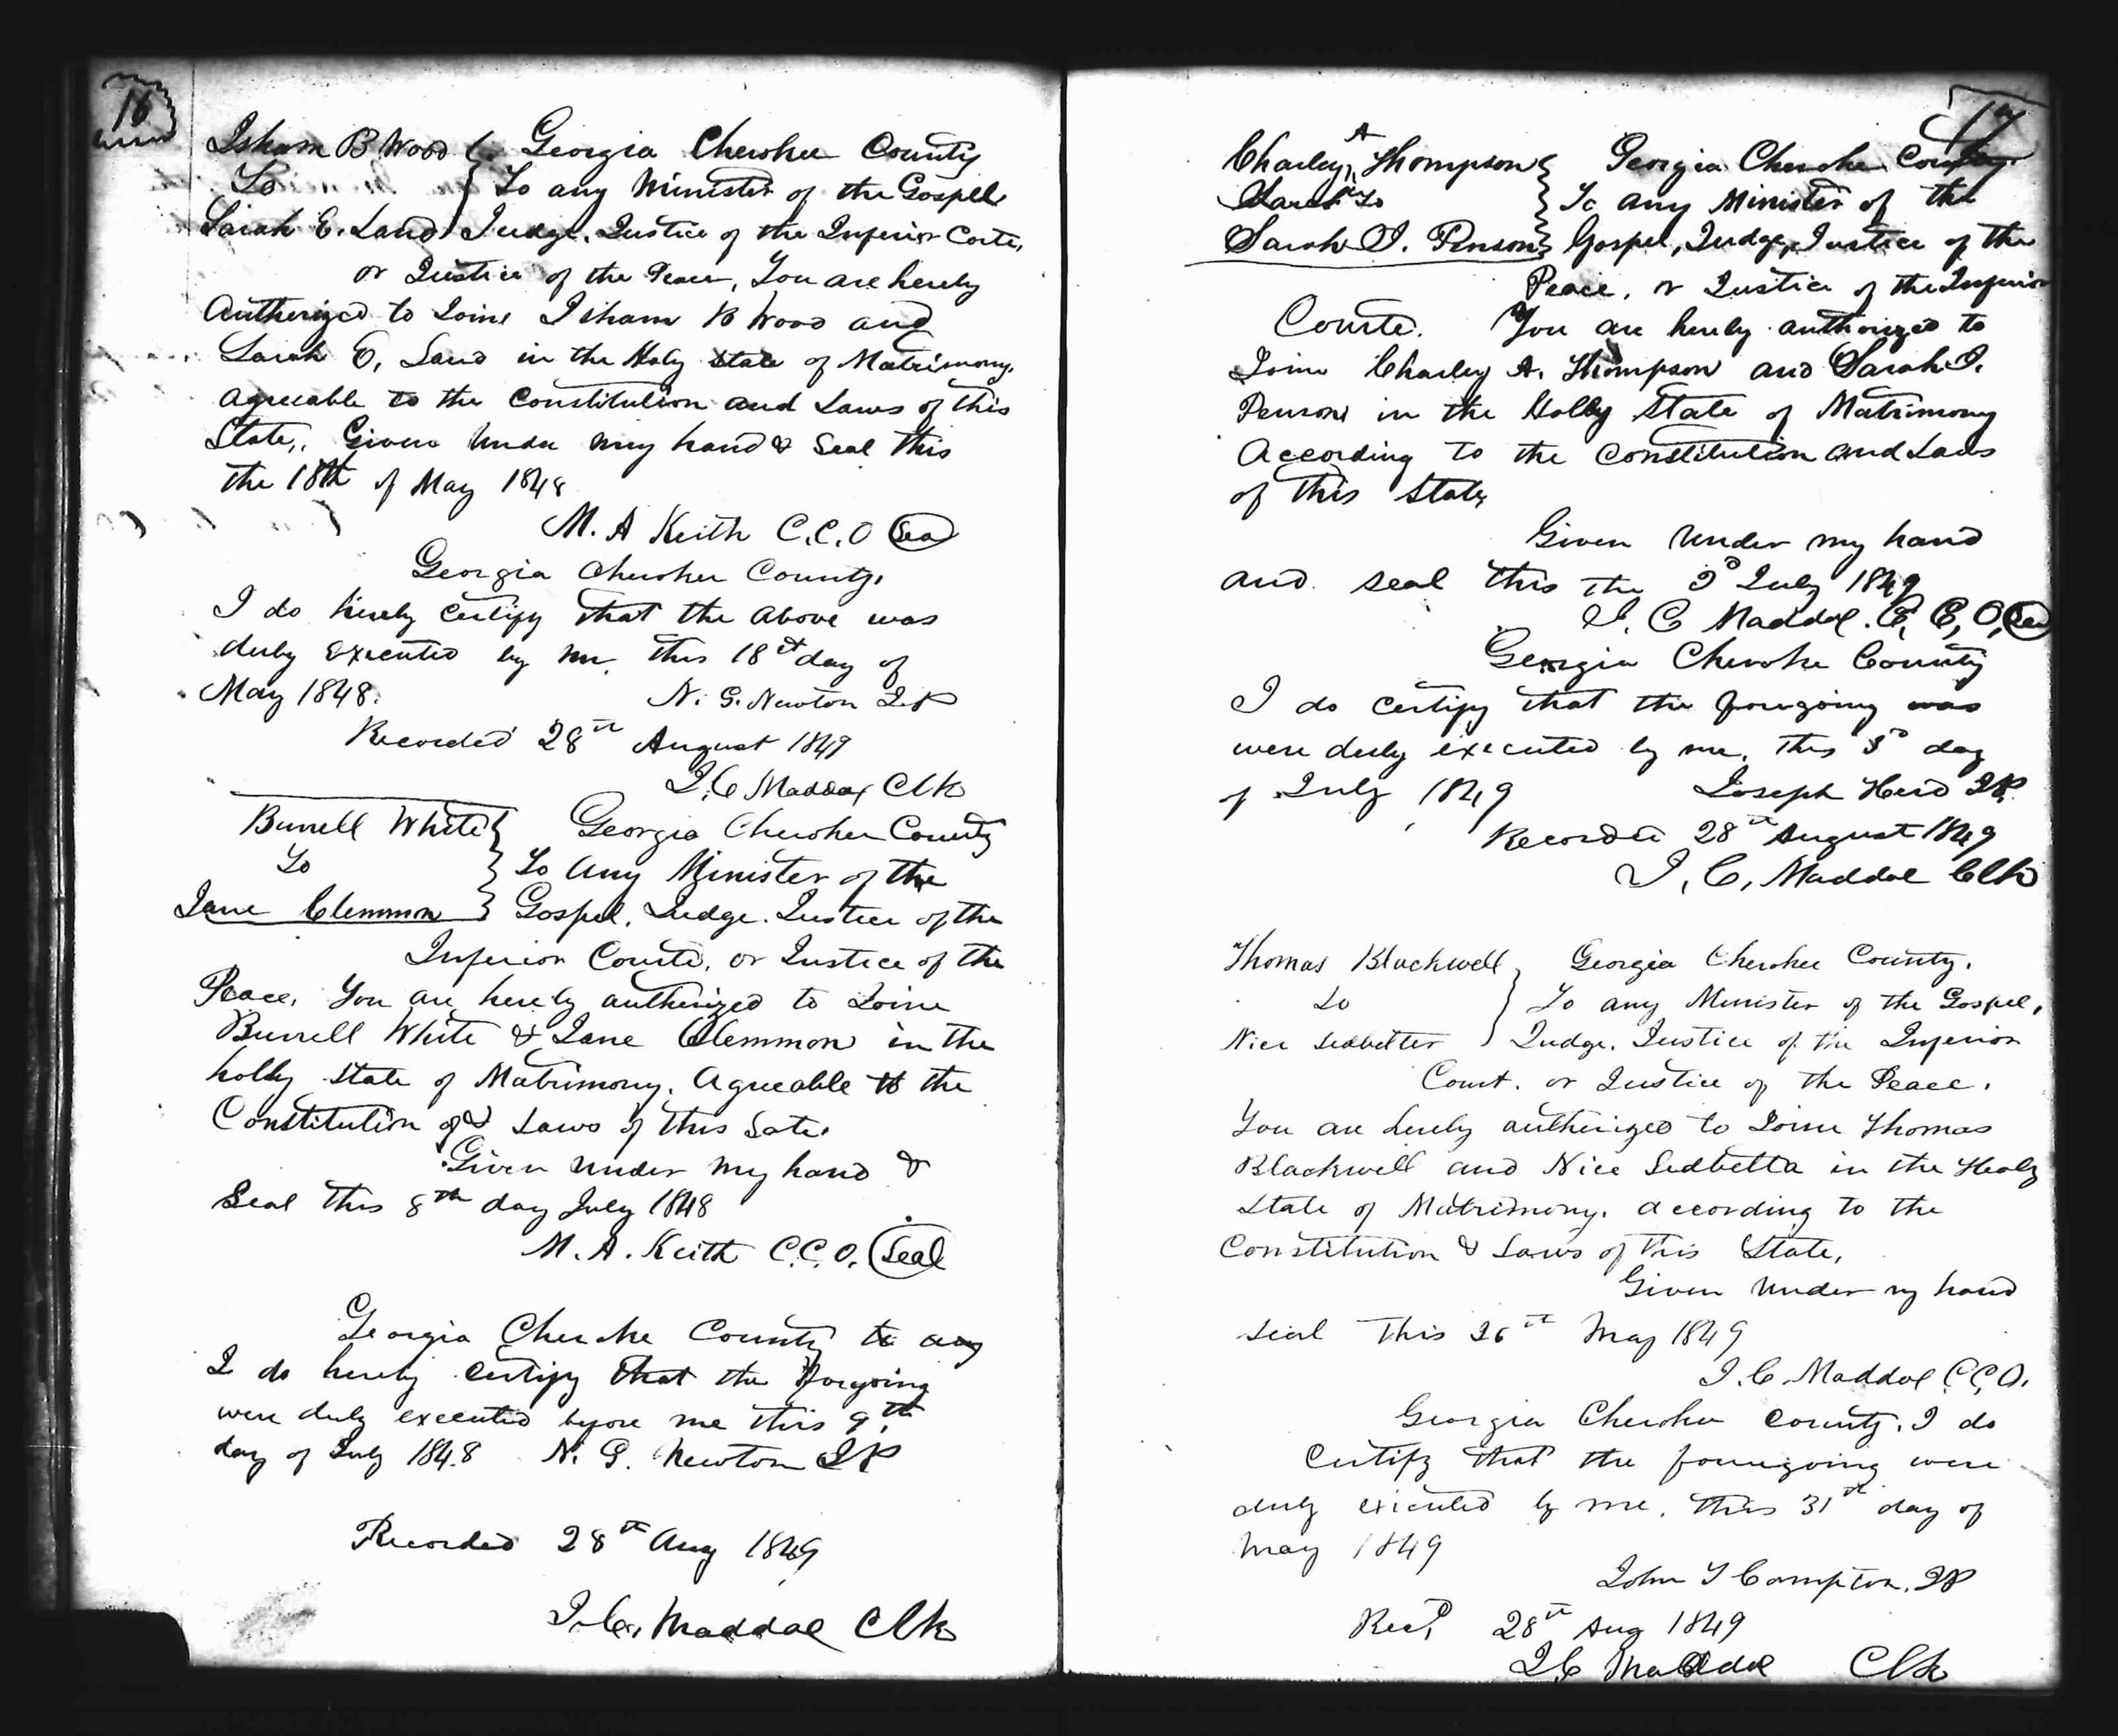 16
Isham B Wood Georgia Cherokee County
To To any Minister of the Gospel
Sarah E. Land Judge, Justice of the Inferior Corte,
or Justice of the Peace, You are hereby
Authorized to Joine Isham B Wood and
Sarah E, Land in the Holy State of Matrimony,
agreeable to the Constitution and Laws of this
State, Given Under my hand & Seal this
the 18th of May 1848
M. A Keith C.C.O Sea
Georgia Cherokee County,
I do hereby certify that the above was
duly executed by me, this 18th day of
May 1848. N. G. Newton J.P
Recorded 28th August 1849
J,C Maddox Clk
Burrell White Georgia Cherokee County
To To any Minister of the
Jane Clemmon Gospel, Judge. Justice of the
Inferior Courte, or Justice of the
Peace, You are hereby authorized to Joine
Burrell White & Jane Clemmon in the
holly State of Matrimony, Agreeable to the
Constitution of & Laws of this Sate.
Given under my hand &
Seal this 8th day July 1848
M. A. Keith C.C.O. Seal
Georgia Cherokee County to any
I do hereby certify that the forgoing
were duly executed before me this 9th
day of July 1848 N. G. Newton JP
Recorded 28th Aug 1849
J.C. Maddox Clk
17
Charley A Thompson Georgia Cherokee County
To To any Minister of the
Sarah J. Penson Gospel, Judge, Justice of the
Peace, or Justice of the Inferior
Courte. You are hereby authorized to
Joine Charley A. Thompson and Sarah J.
Penson in the Holly State of Matrimony
According to the Constitution and Laws
of this State
Given Under my hand
and seal this the 3d July 1849
J. C Maddox. C, C, O, Sea
Georgia Cherokee County
I do certify that the foregoing was
were duly executed by me, this 3d day
of July 1849 Joseph Herd JP.
Recorded 28th August 1849
J, C, Maddox Clk
Thomas Blackwell Georgia Cherokee County.
to To any Minister of the Gospel,
Nice Ledbetter Judge, Justice of the Inferior
Court. or Justice of the Peace.
You are hereby authorized to Joine Thomas
Blackwell and Nice Ledbetta in the Holy
State of Matrimony. according to the
Constitution & Laws of this State,
Given Under my hand
seal this 26th May 1849
J. C Maddox C.C,O.
Georgia Cherokee County, I do
certify that the foregoing were
duly executed by me, this 31st day of
May 1849
John Y Compton, JP
Recd, 28th Aug 1849
J,C Maddox Clk